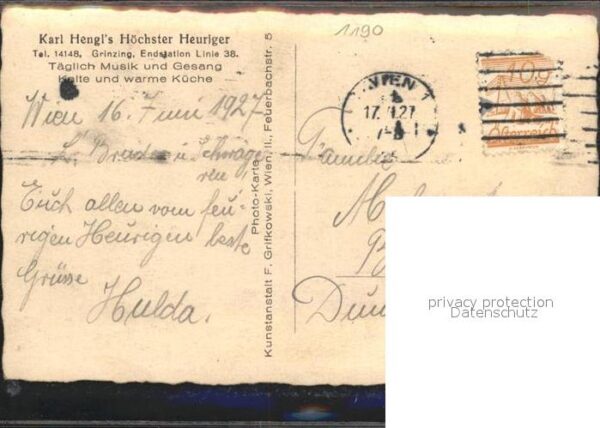 1190
Karl Hengl's Höchster Heuriger
Tel. 14148, Grinzing, Endstation Linie 38.
Täglich Musik und Gesang
Kalte und warme Küche
Wien 16. Juni 1927
L. Bruder u. Schwäge
rin,
Euch allen vom feu-
rigen Heurigen beste
Grüsse
Hulda.
Photo-Karte
Kunstanstalt F. Grifkowski, Wien, II., Feuerbachstr. 5
WIEN 1
17. 27
10 g
Österreich
Familie
privacy protection
Datenschutz